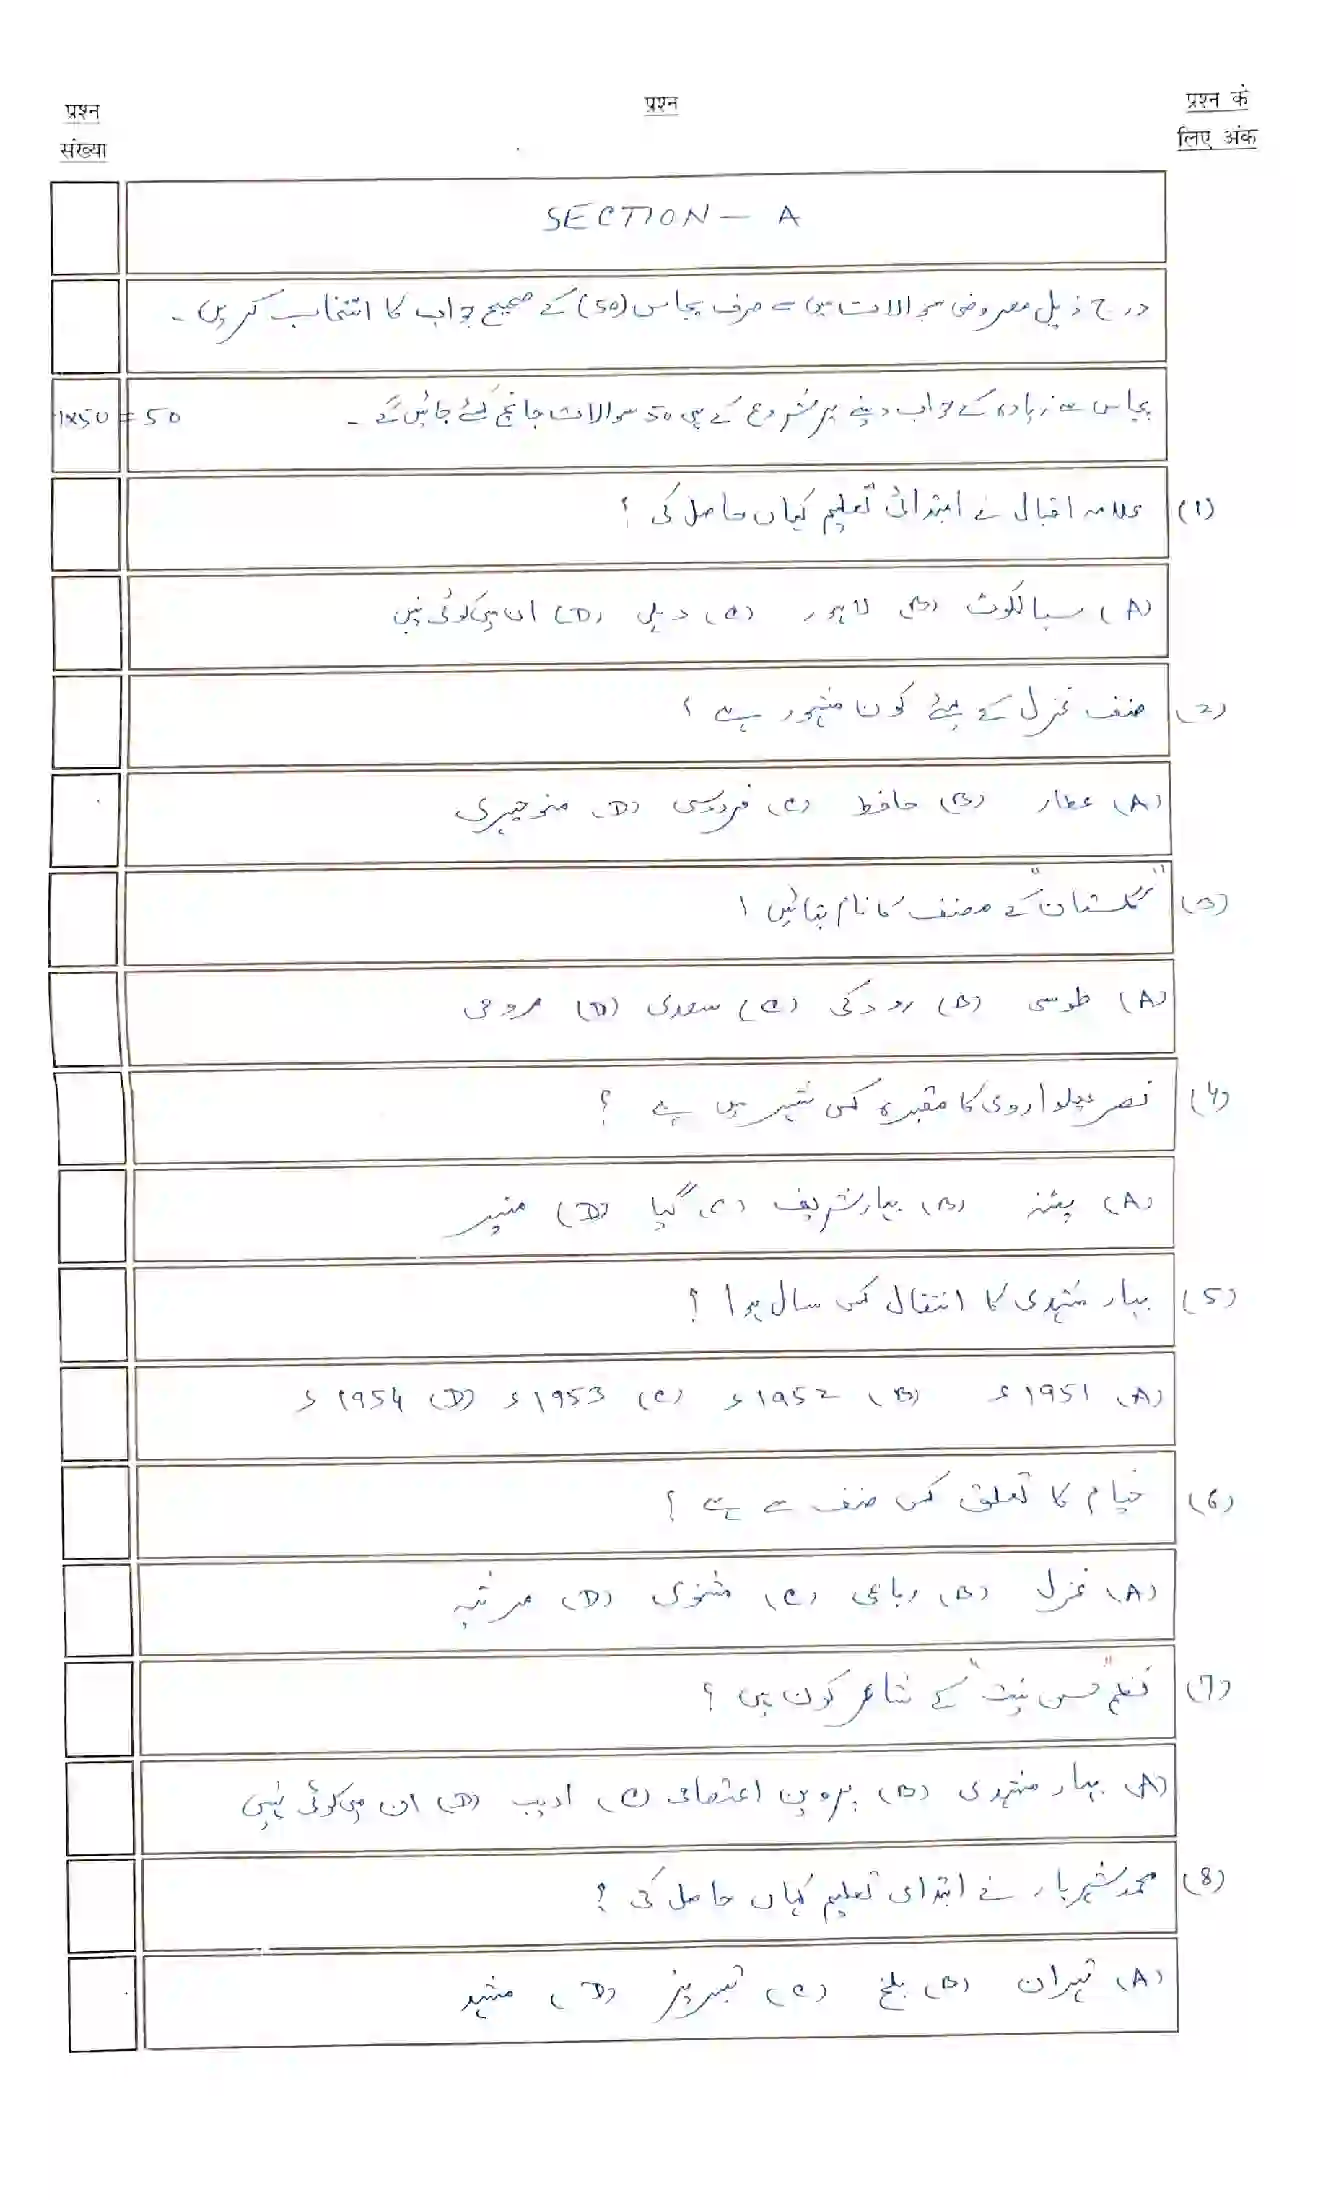 प्रश्न संख्या
प्रश्न
प्रश्न के लिए अंक
SECTION – A
درج ذیل معروضی سوالات میں سے صرف پچاس (50) کے صحیح جواب کا انتخاب کریں۔
پچاس سے زیادہ کے جواب دینے پر شروع کے ہی 50 سوالات جانچ کئے جائیں گے۔
1x50 = 50
(1) علامہ اقبال نے ابتدائی تعلیم کہاں حاصل کی ؟
(A) سیالکوٹ (B) لاہور (C) دہلی (D) ان میں کوئی نہیں
(2) صنف غزل کے لیے کون مشہور ہے ؟
(A) عطار (B) حافظ (C) فردوسی (D) منوچہری
(3) "گلستان" کے مصنف کا نام بتائیں ؟
(A) طوسی (B) رودکی (C) سعدی (D) عروضی
(4) نصر پھلواروی کا مقبرہ کس شہر میں ہے ؟
(A) پٹنہ (B) بہار شریف (C) گیا (D) منیر
(5) بہار مشہدی کا انتقال کس سال ہوا ؟
(A) 1951ء (B) 1952ء (C) 1953ء (D) 1954ء
(6) خیام کا تعلق کس صنف سے ہے ؟
(A) غزل (B) رباعی (C) مثنوی (D) مرثیہ
(7) نظم "حسن نیت" کے شاعر کون ہیں ؟
(A) بہار مشہدی (B) پروین اعتصامی (C) ادیب (D) ان میں کوئی نہیں
(8) محمد شہریار نے ابتدای تعلیم کہاں حاصل کی ؟
(A) تہران (B) بلخ (C) تبریز (D) مشہد